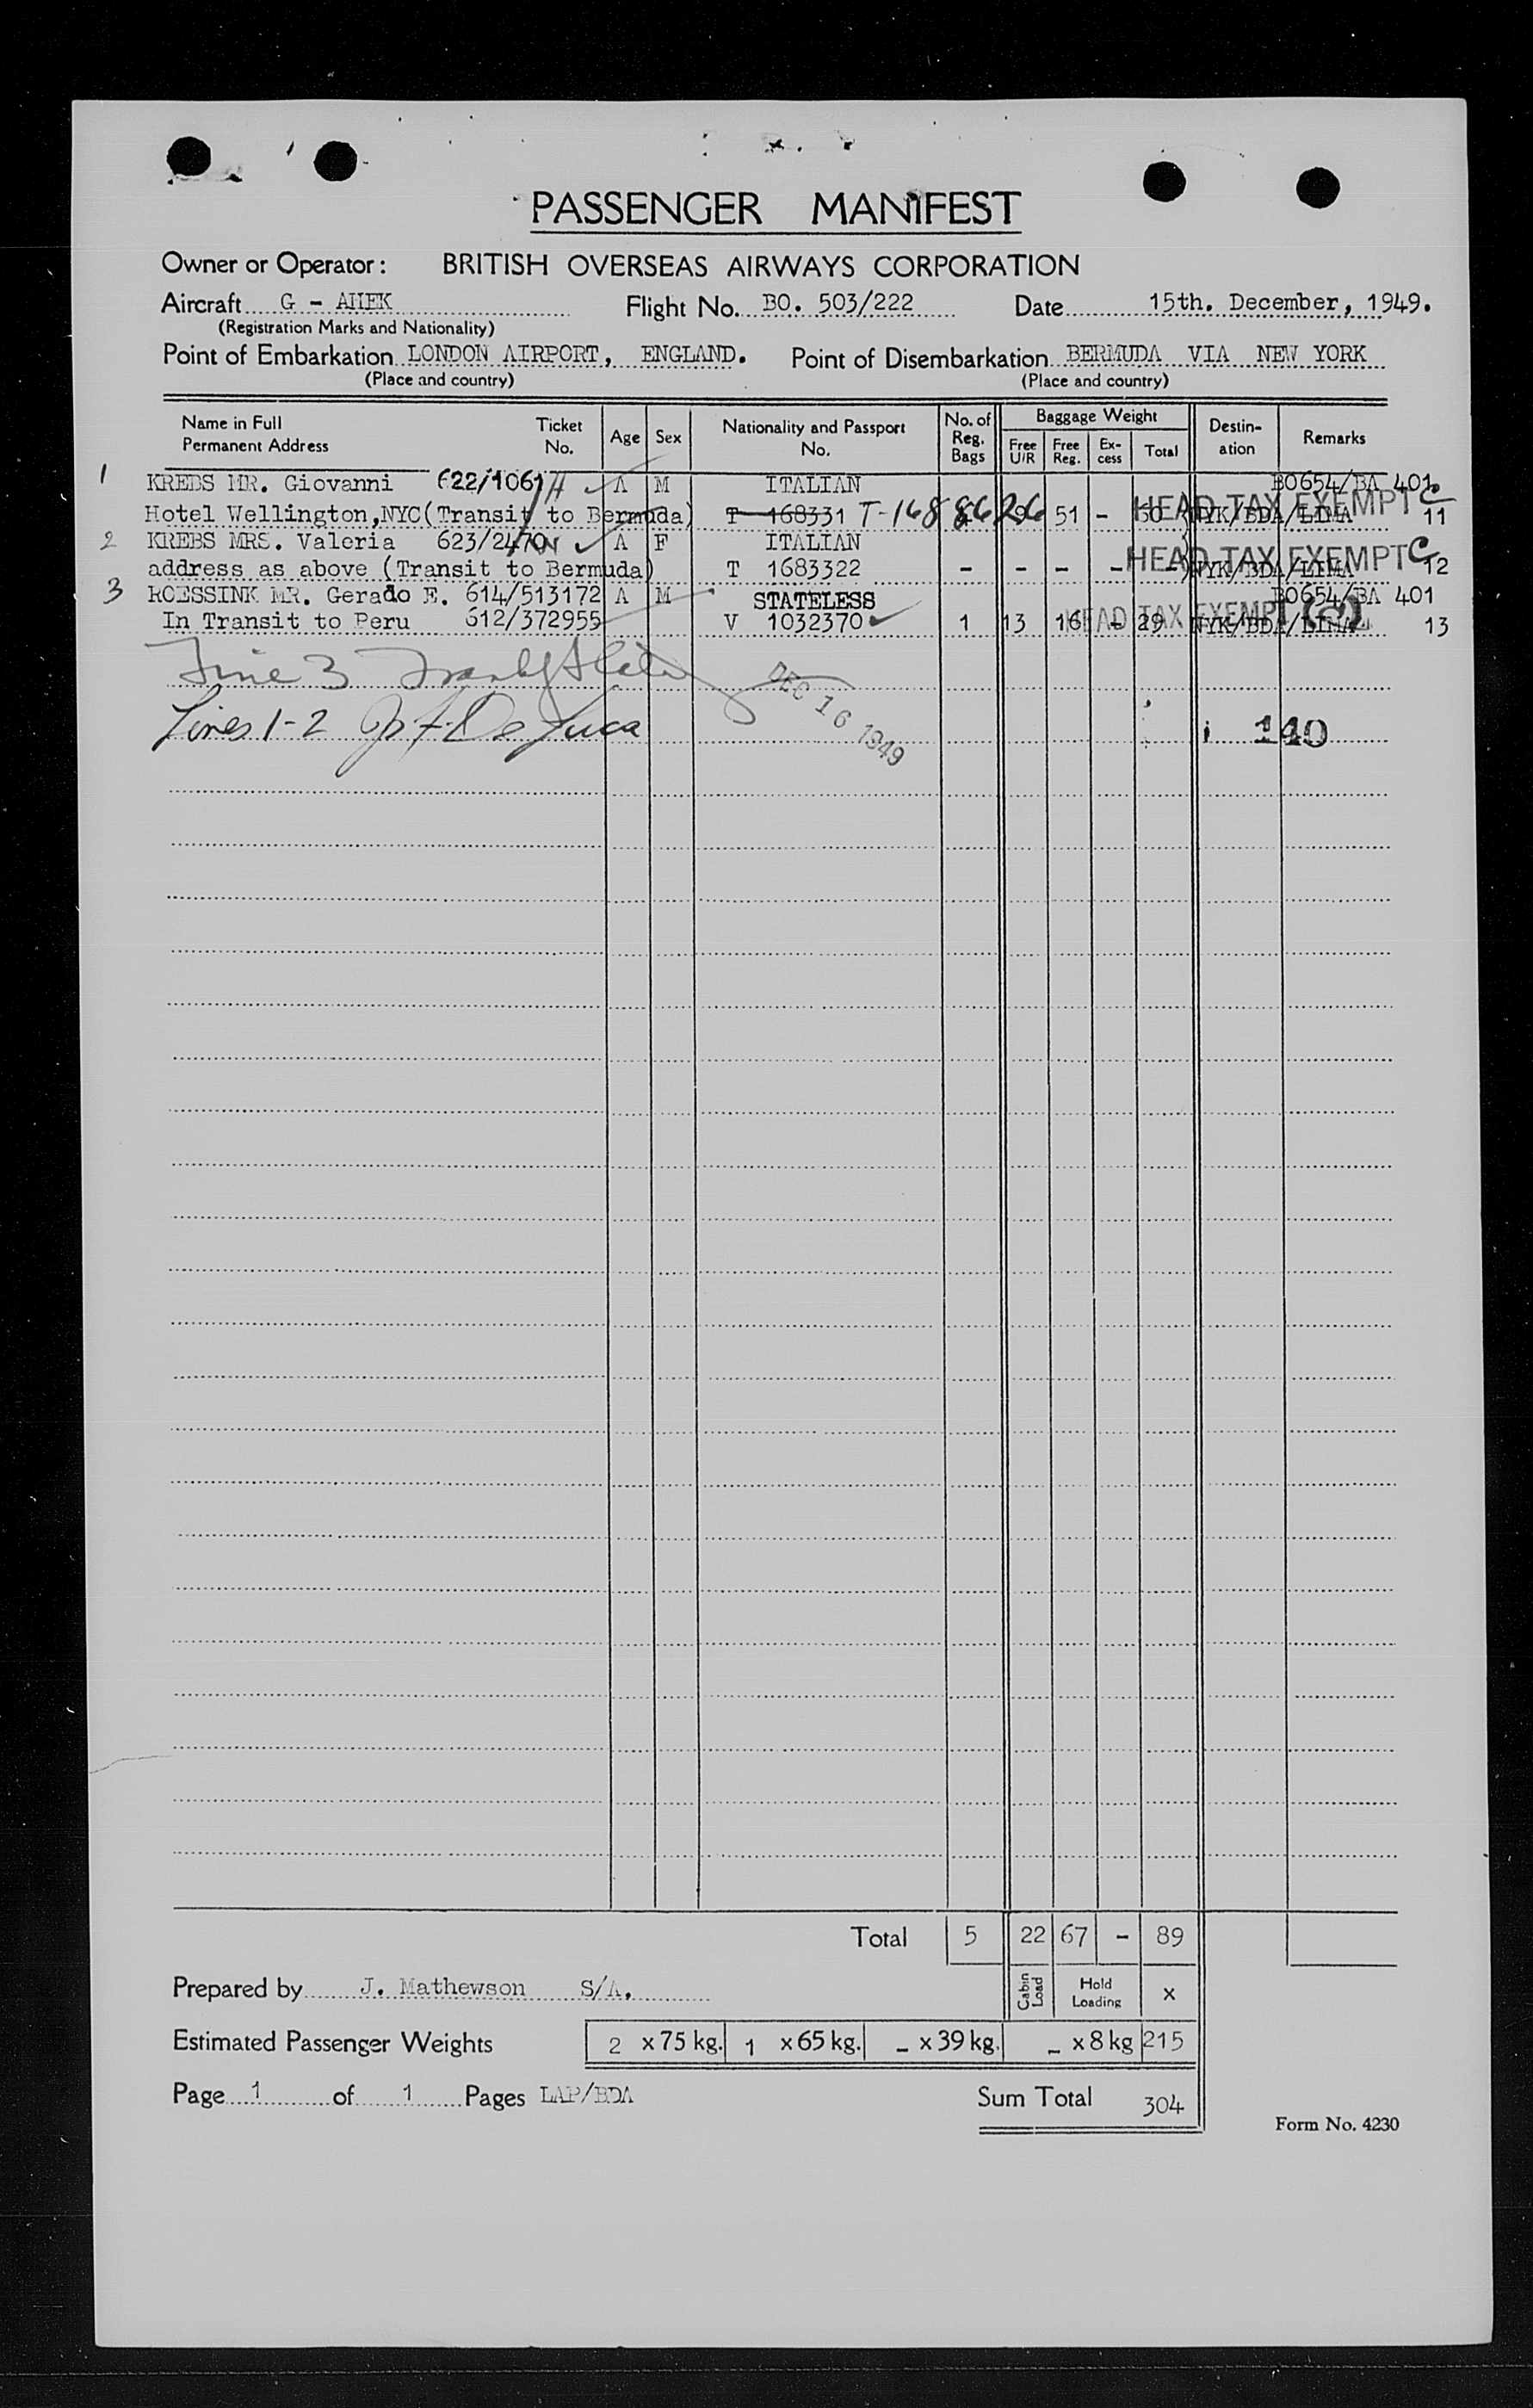 PASSENGER MANIFEST
Owner or Operator : BRITISH OVERSEAS AIRWAYS CORPORATION
Aircraft G - AHEK Flight No. BO. 503/222 Date 15th. December, 1949.
(Registration Marks and Nationality)
Point of Embarkation LONDON AIRPORT, ENGLAND. Point of Disembarkation BERMUDA VIA NEW YORK
(Place and country) (Place and country)
Name in Full Permanent Address Ticket No. Age Sex Nationality and Passport No. No. of Reg. Bags Baggage Weight Free U/R Free Reg. Ex-cess Total Destin-ation Remarks
1 KREBS MR. Giovanni 622/1061 A M ITALIAN BO654/BA 401
Hotel Wellington,NYC(Transit to Bermuda) T 168331 T-1688626 51 - HEAD TAX EXEMPT C NYK/BDA/LIMA 11
2 KREBS MRS. Valeria 623/2470 A F ITALIAN
address as above (Transit to Bermuda) T 1683322 - - - - - HEAD TAX EXEMPT C NYK/BDA/LIMA 12
3 ROESSINK MR. Gerado E. 614/513172 A M STATELESS BO654/BA 401
In Transit to Peru 612/372955 V 1032370 1 13 16 - 29 HEAD TAX EXEMPT (C) NYK/BDA/LIMA 13
Line 3
DEC 16 1949
Lines 1-2 De Luca 140
Total 5 22 67 - 89
Prepared by J. Mathewson S/A. Cabin Load Hold Loading x
Estimated Passenger Weights 2 x 75 kg. 1 x 65 kg. - x 39 kg. - x 8 kg 215
Page 1 of 1 Pages LAP/BDA Sum Total 304
Form No. 4230